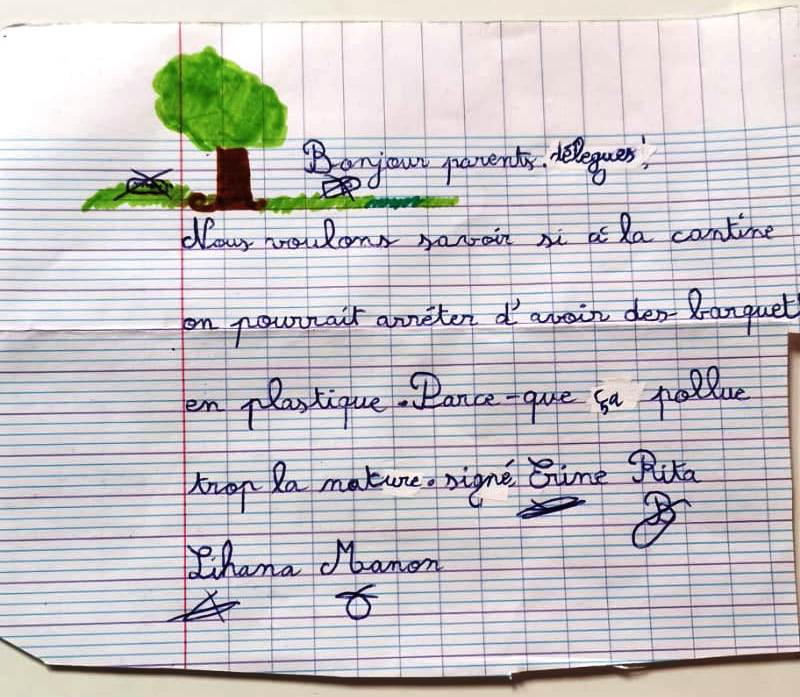 Bonjour parents. délegués!
Nous voulons savoir si à la cantine
on pourrait arrêter d'avoir des barquet
en plastique. Parce-que ça pollue
trop la nature. signé, Erine Rita
Lihana Manon